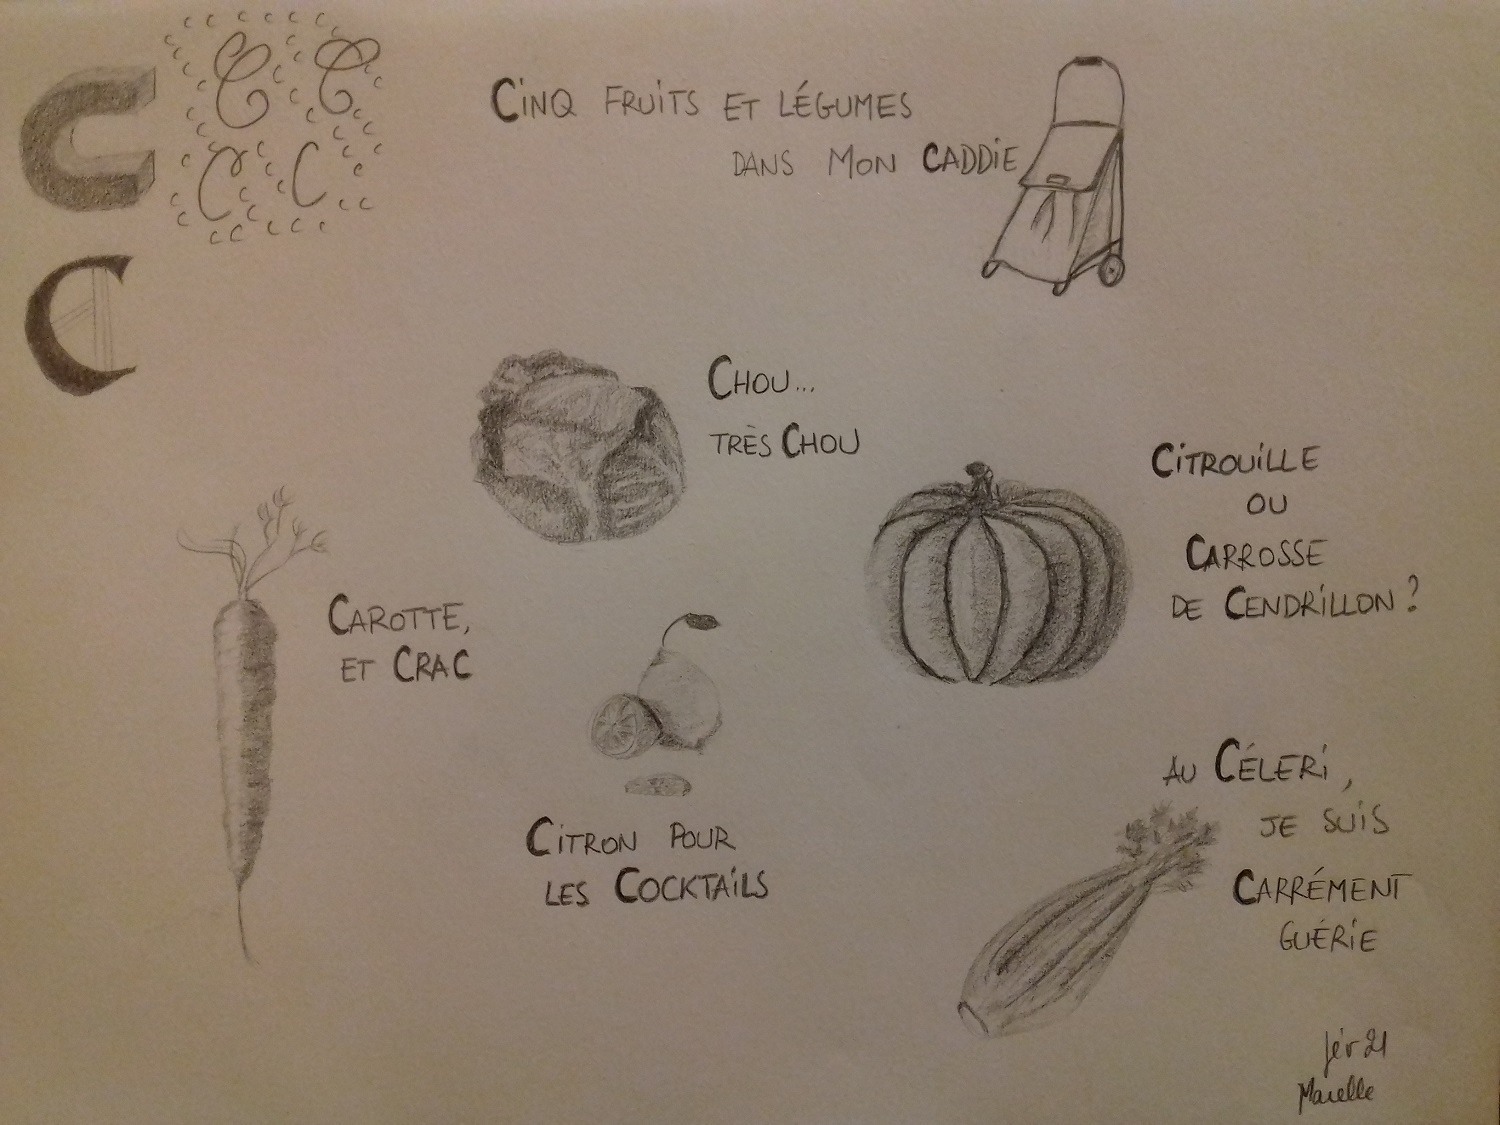 C C C
C C
C
CINQ FRUITS ET LÉGUMES
DANS MON CADDIE
CHOU...
TRÈS CHOU
CITROUILLE
OU
CARROSSE
DE CENDRILLON ?
CAROTTE,
ET CRAC
CITRON POUR
LES COCKTAILS
AU CÉLERI,
JE SUIS
CARRÉMENT
GUÉRIE
fév 21